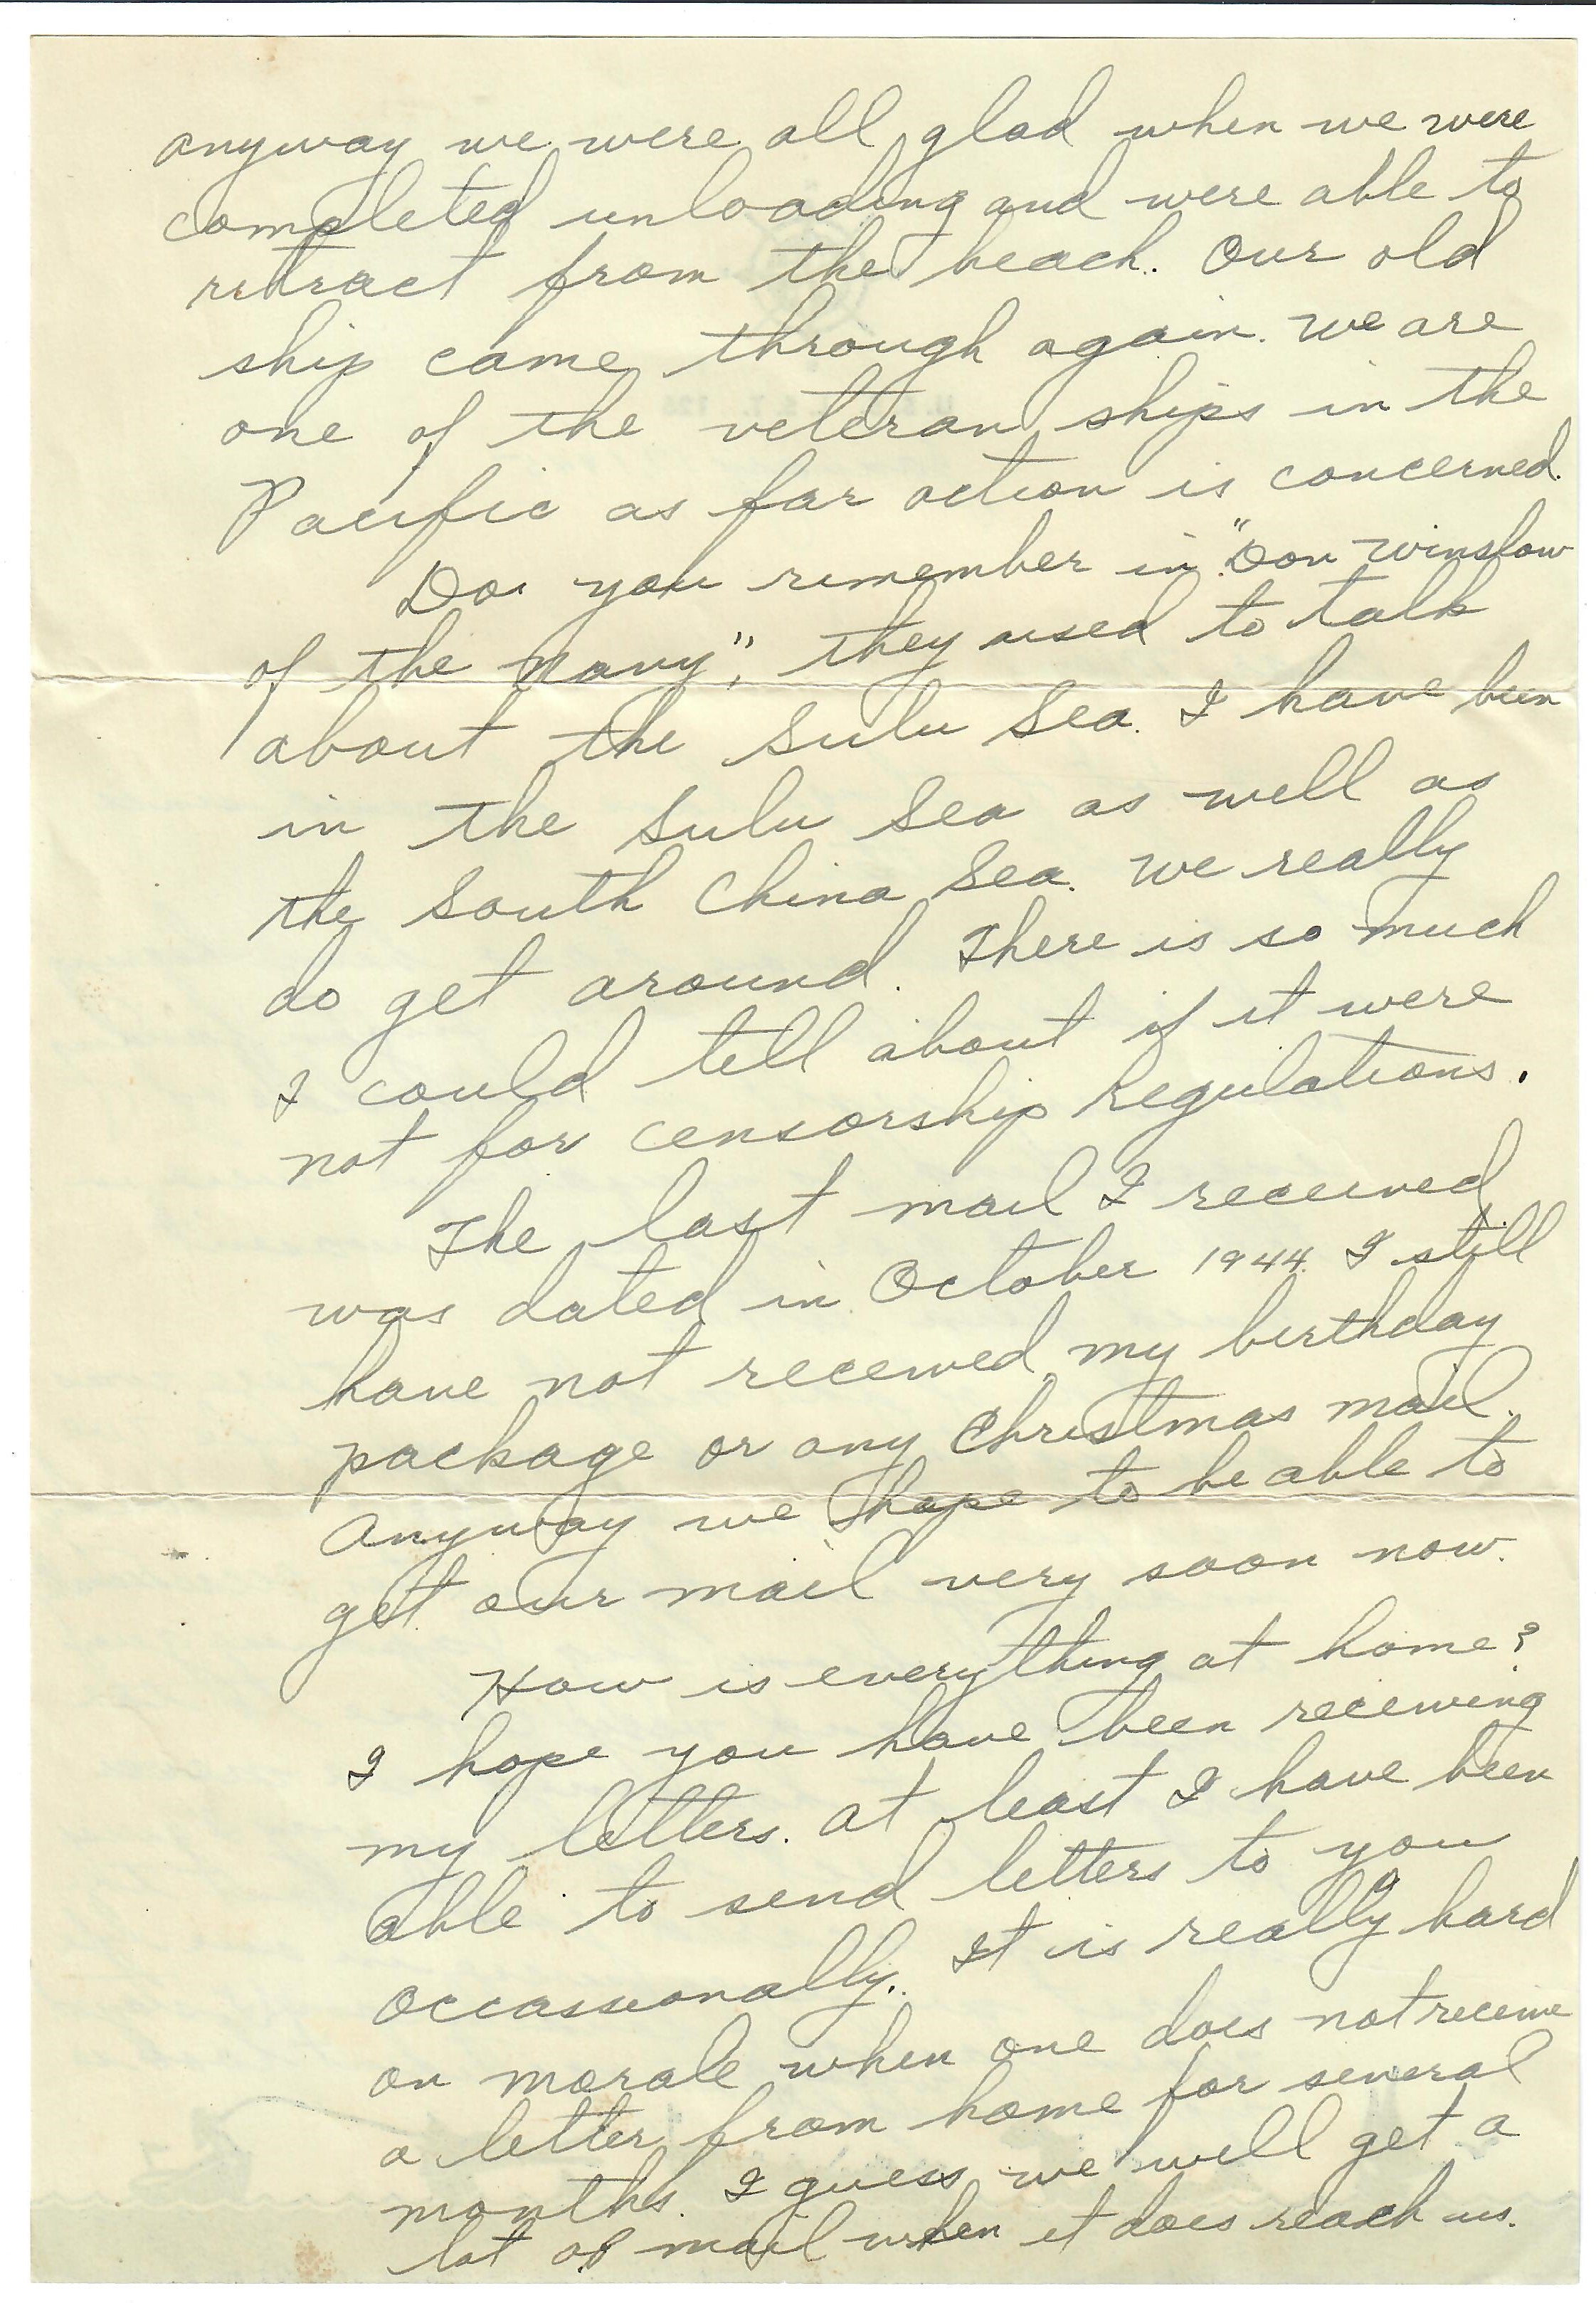 anyway we were all glad when we were
completed unloading and were able to
retract from the beach. Our old
ship came through again. We are
one of the veteran ships in the
Pacific as far action is concerned.
Do you remember in "Don Winslow
of the Navy", they used to talk
about the Sulu Sea. I have been
in the Sulu Sea as well as
the South China Sea. We really
do get around. There is so much
I could tell about if it were
not for censorship regulations.
The last mail I received
was dated in October 1944. I still
have not received my birthday
package or any Christmas mail.
Anyway we hope to be able to
get our mail very soon now.
How is everything at home?
I hope you have been receiving
my letters. At least I have been
able to send letters to you
occassionally. It is really hard
on morale when one does not receive
a letter from home for several
months. I guess we will get a
lot of mail when it does reach us.